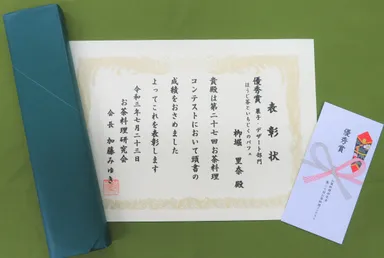 表彰状
優秀賞 菓子・デザート部門
ほうじ茶といちじくのパフェ
柳堀 里奈 殿
貴殿は第二十七回お茶料理
コンテストにおいて頭書の
成績をおさめました
よってこれを表彰します
令和三年七月二十三日
お茶料理研究会
会長 加藤みゆき
優秀賞